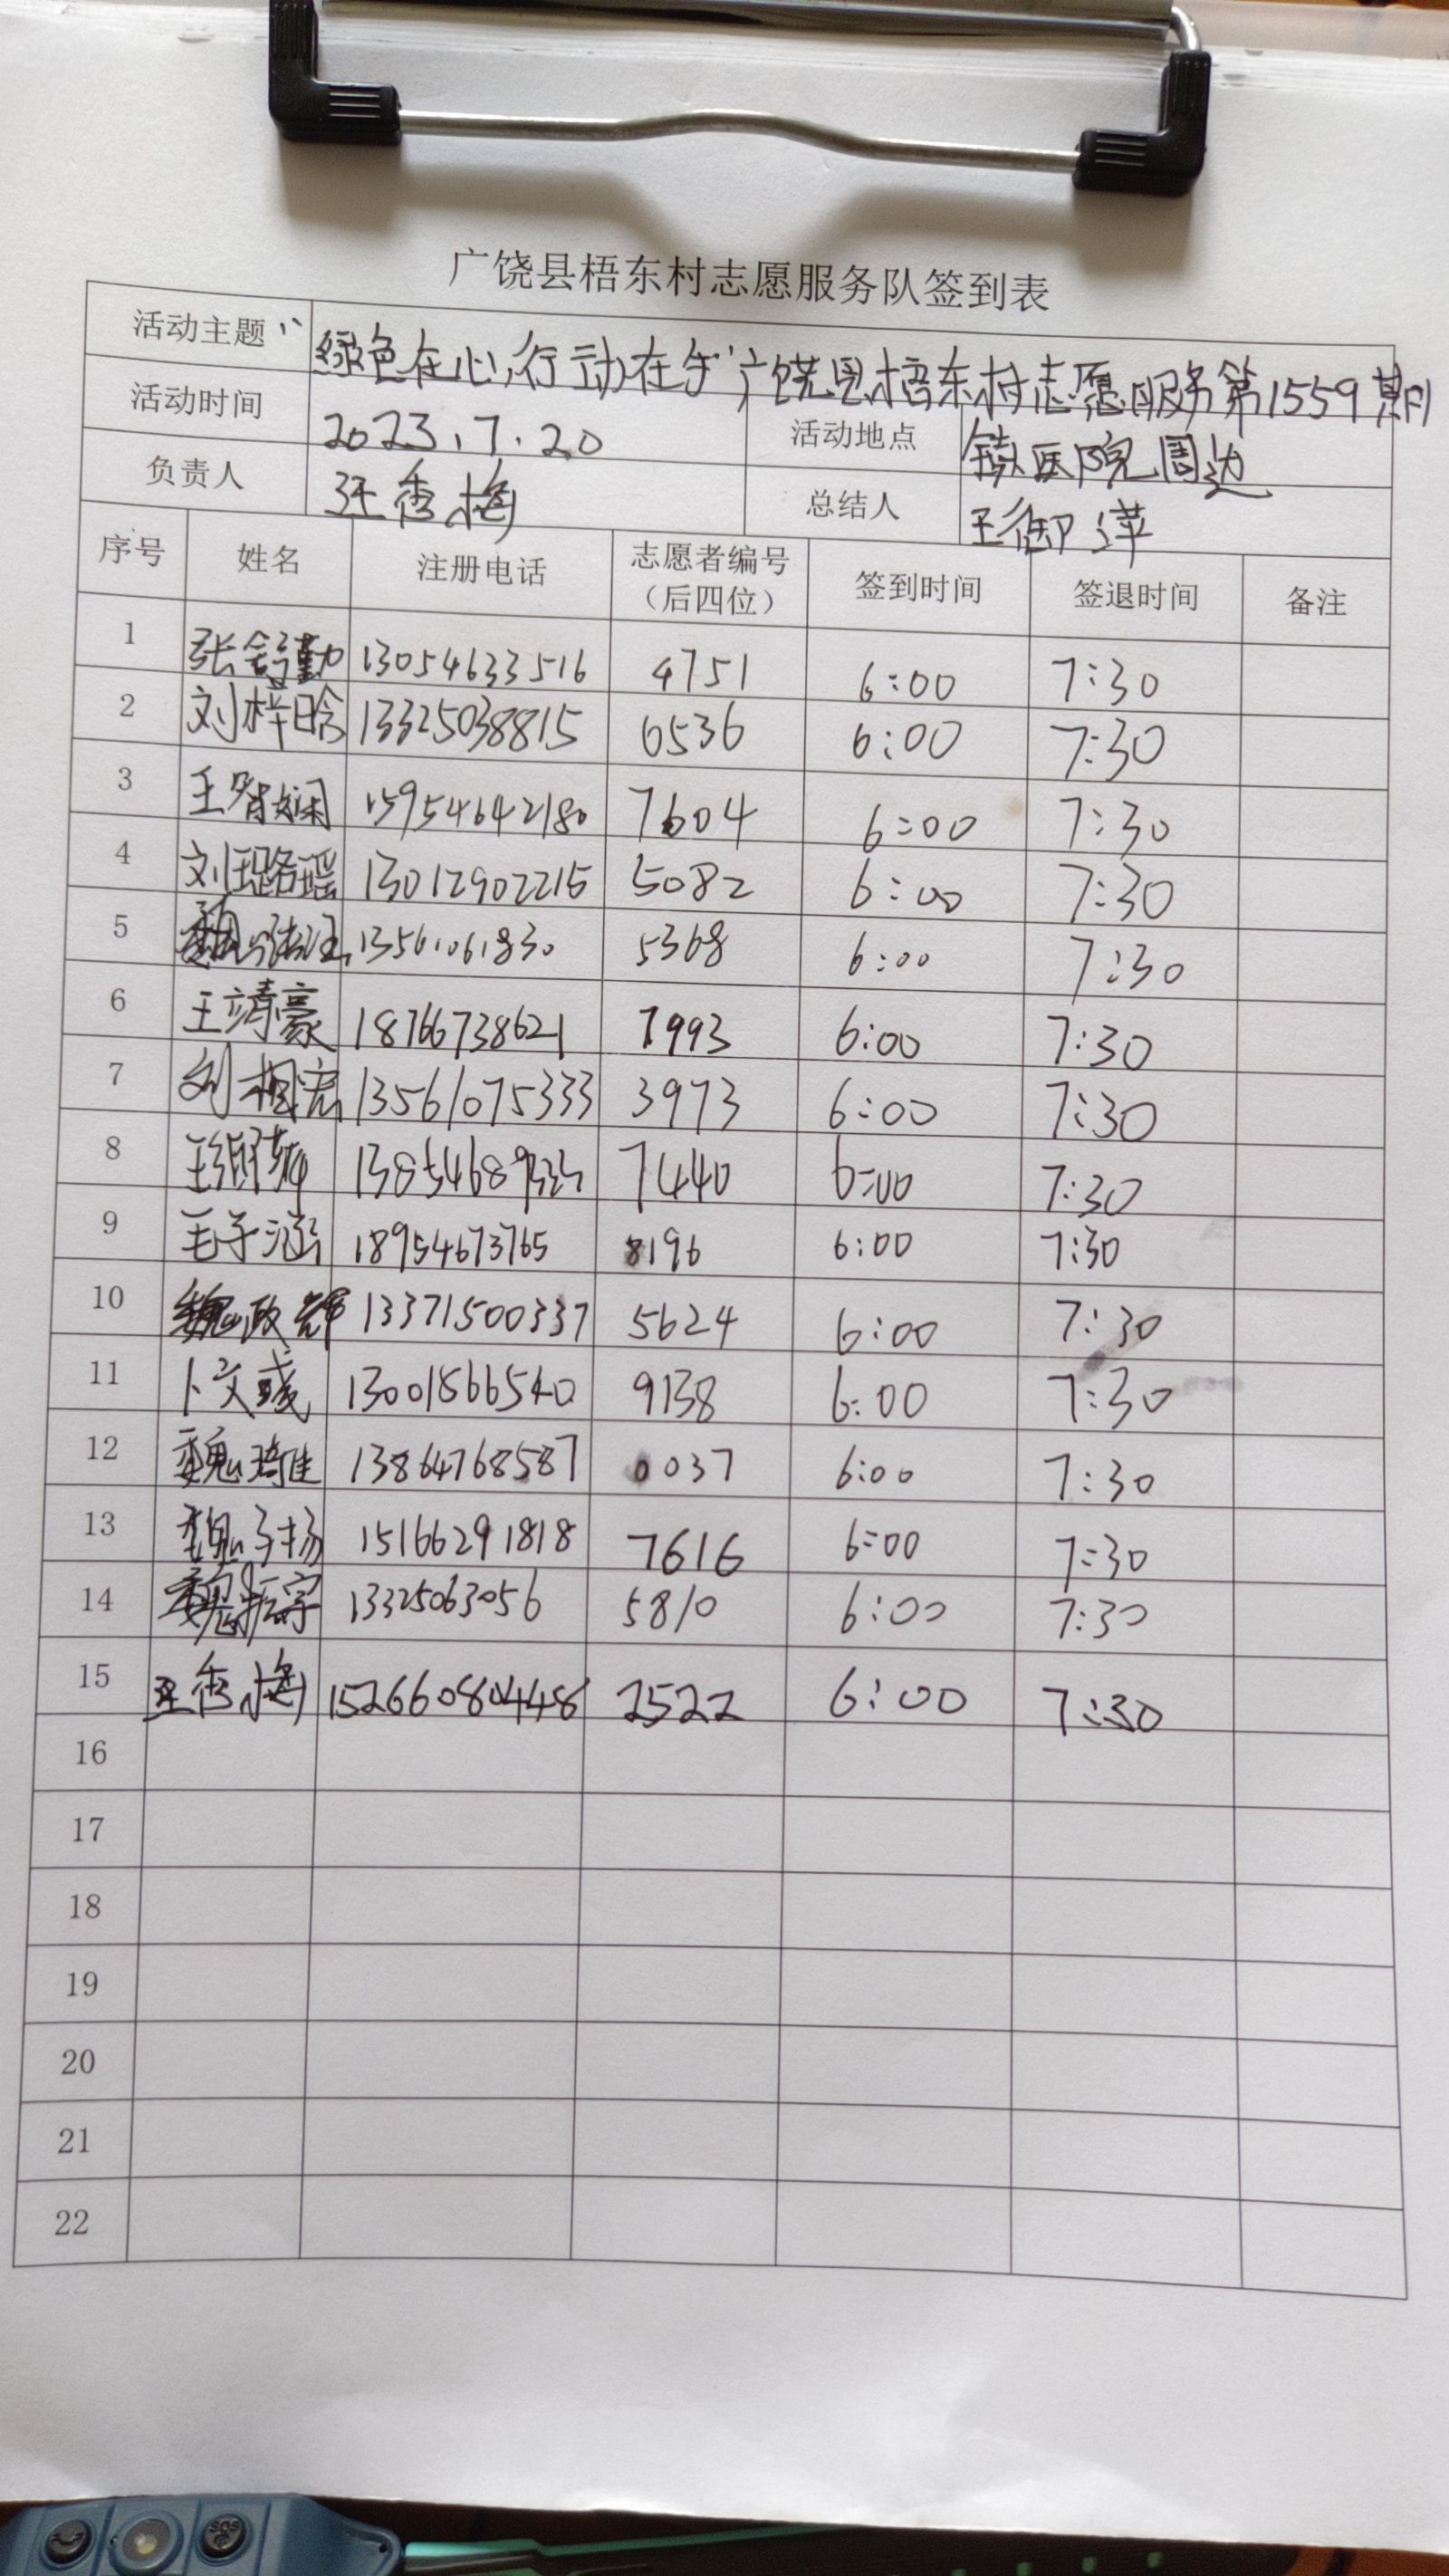 广饶县梧东村志愿服务队签到表
活动主题 "绿色在心,行动在手"广饶县梧东村志愿服务第1559期
活动时间 2023.7.20 活动地点 镇医院周边
负责人 王香梅 总结人 王御萍
序号 姓名 注册电话 志愿者编号（后四位） 签到时间 签退时间 备注
1 张舒勤 13054633516 4751 6:00 7:30
2 刘梓晗 13325038815 6536 6:00 7:30
3 王智娴 15954642180 7604 6:00 7:30
4 刘璐瑶 13012902215 5082 6:00 7:30
5 魏 13561061830 5368 6:00 7:30
6 王靖豪 18766738621 7993 6:00 7:30
7 刘桓宏 13561075333 3973 6:00 7:30
8 王 7440 6:00 7:30
9 毛子涵 18954673765 8196 6:00 7:30
10 魏政辉 13371500337 5624 6:00 7:30
11 卜文彧 13001566540 9138 6:00 7:30
12 魏琦佳 13864768587 0037 6:00 7:30
13 魏子扬 15166291818 7616 6:00 7:30
14 魏振宇 13325063056 5810 6:00 7:30
15 王香梅 15266080448 2522 6:00 7:30
16
17
18
19
20
21
22
SOS